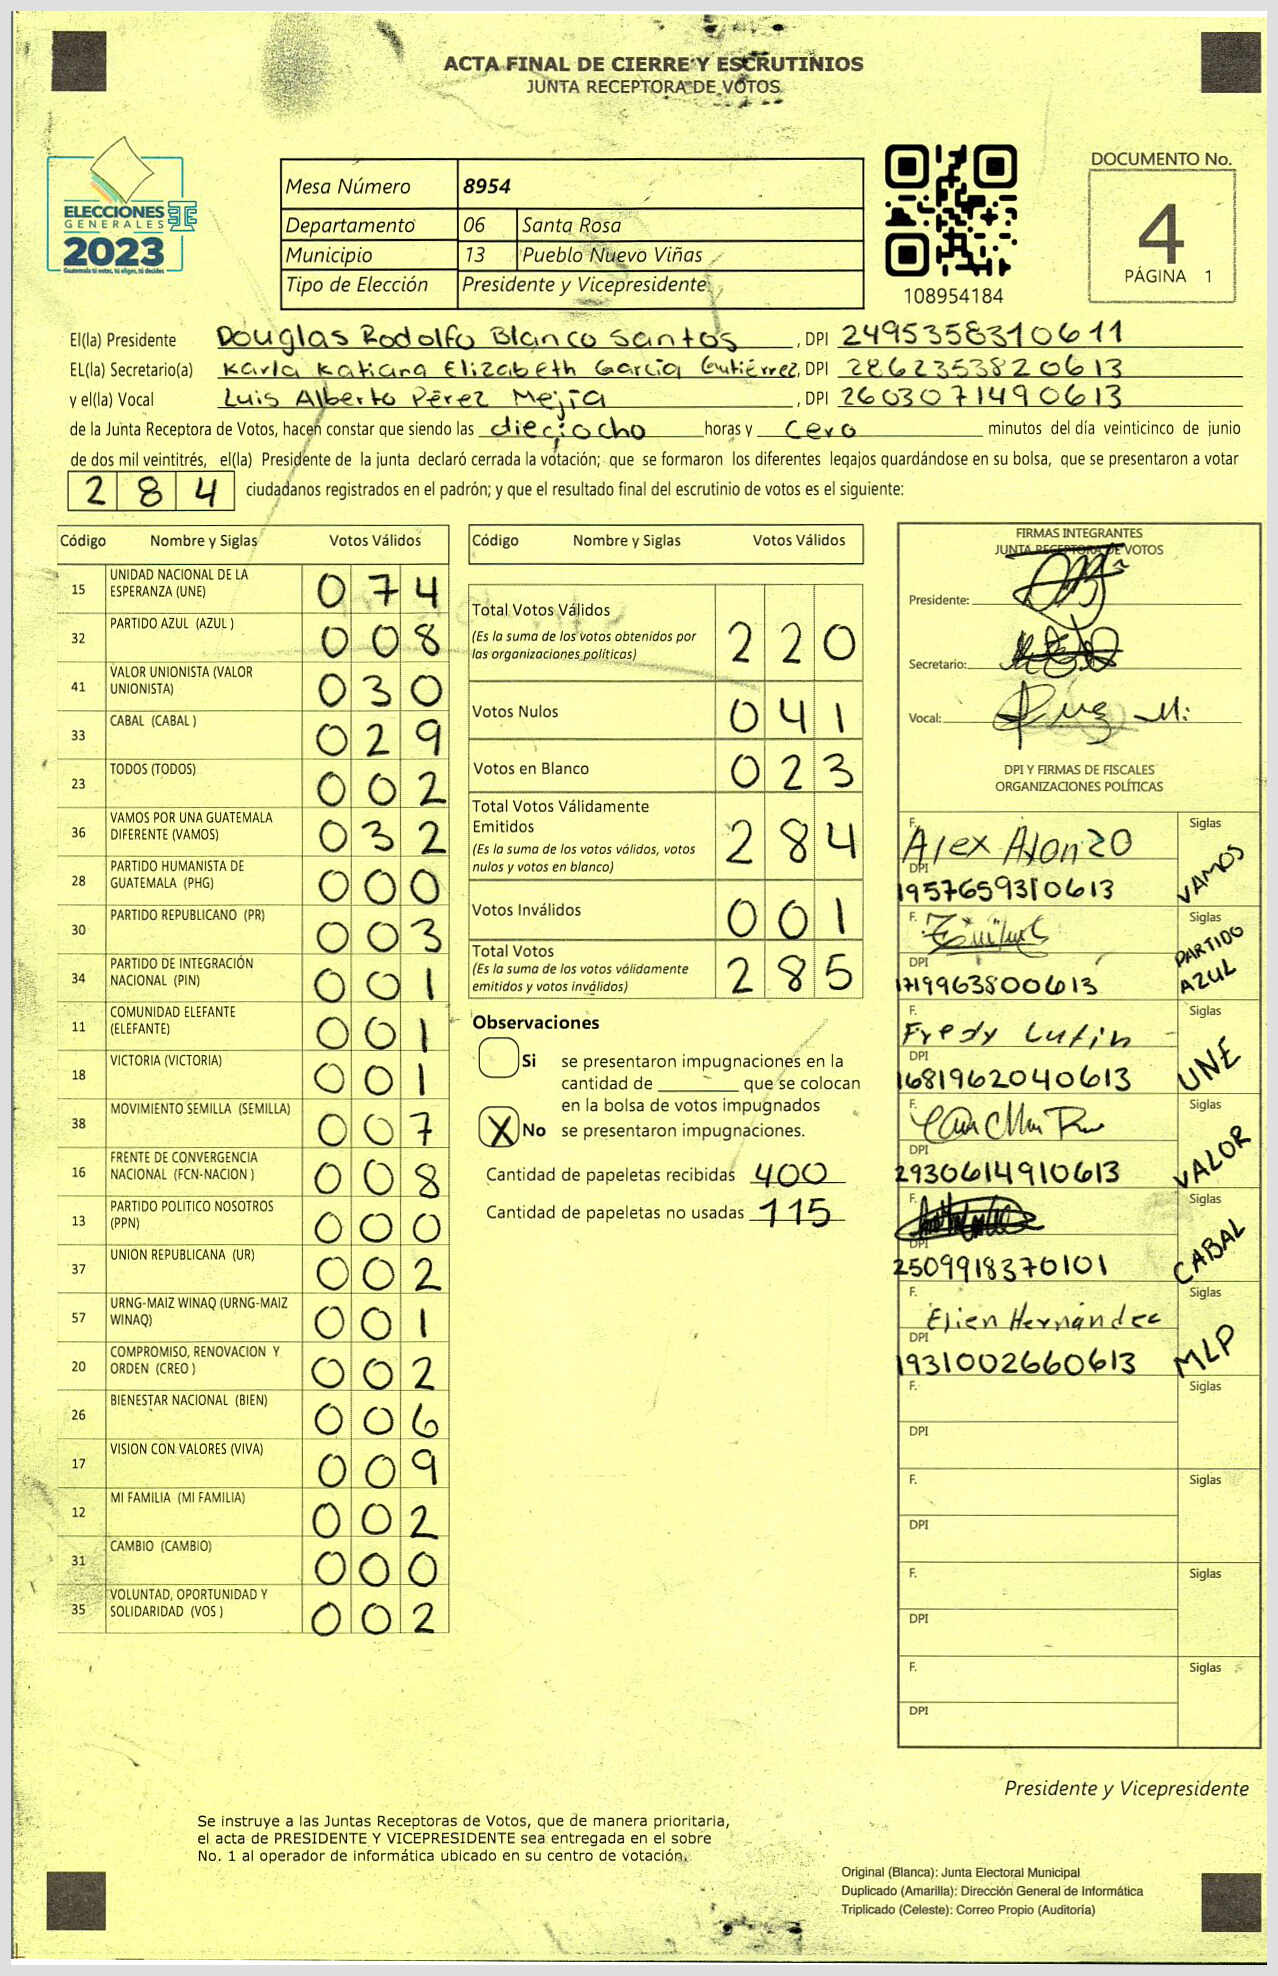 ACTA FINAL DE CIERRE Y ESCRUTINIOS
JUNTA RECEPTORA DE VOTOS
ELECCIONES
GENERALES
2023
Guatemala tú votas, tú eliges, tú decides
Mesa Número 8954
Departamento 06 Santa Rosa
Municipio 13 Pueblo Nuevo Viñas
Tipo de Elección Presidente y Vicepresidente
108954184
DOCUMENTO No.
4
PÁGINA 1
El(la) Presidente Douglas Rodolfo Blanco Santos, DPI 2495358310611
EL(la) Secretario(a) Karla Katiana Elizabeth García Gutiérrez, DPI 2862353820613
y el(la) Vocal Luis Alberto Pérez Mejía, DPI 2603071490613
de la Junta Receptora de Votos, hacen constar que siendo las dieciocho horas y cero minutos del día veinticinco de junio
de dos mil veintitrés, el(la) Presidente de la junta declaró cerrada la votación; que se formaron los diferentes legajos quardándose en su bolsa, que se presentaron a votar
284 ciudadanos registrados en el padrón; y que el resultado final del escrutinio de votos es el siguiente:
Código Nombre y Siglas Votos Válidos
15 UNIDAD NACIONAL DE LA ESPERANZA (UNE) 074
32 PARTIDO AZUL (AZUL ) 008
41 VALOR UNIONISTA (VALOR UNIONISTA) 030
33 CABAL (CABAL ) 029
23 TODOS (TODOS) 002
36 VAMOS POR UNA GUATEMALA DIFERENTE (VAMOS) 032
28 PARTIDO HUMANISTA DE GUATEMALA (PHG) 000
30 PARTIDO REPUBLICANO (PR) 003
34 PARTIDO DE INTEGRACIÓN NACIONAL (PIN) 001
11 COMUNIDAD ELEFANTE (ELEFANTE) 001
18 VICTORIA (VICTORIA) 001
38 MOVIMIENTO SEMILLA (SEMILLA) 007
16 FRENTE DE CONVERGENCIA NACIONAL (FCN-NACION ) 008
13 PARTIDO POLITICO NOSOTROS (PPN) 000
37 UNION REPUBLICANA (UR) 002
57 URNG-MAIZ WINAQ (URNG-MAIZ WINAQ) 001
20 COMPROMISO, RENOVACION Y ORDEN (CREO ) 002
26 BIENESTAR NACIONAL (BIEN) 006
17 VISION CON VALORES (VIVA) 009
12 MI FAMILIA (MI FAMILIA) 002
31 CAMBIO (CAMBIO) 000
35 VOLUNTAD, OPORTUNIDAD Y SOLIDARIDAD (VOS ) 002
Código Nombre y Siglas Votos Válidos
Total Votos Válidos 220
(Es la suma de los votos obtenidos por
las organizaciones políticas)
Votos Nulos 041
Votos en Blanco 023
Total Votos Válidamente
Emitidos 284
(Es la suma de los votos válidos, votos
nulos y votos en blanco)
Votos Inválidos 001
Total Votos 285
(Es la suma de los votos válidamente
emitidos y votos inválidos)
Observaciones
Si se presentaron impugnaciones en la
cantidad de ________ que se colocan
en la bolsa de votos impugnados
X No se presentaron impugnaciones.
Cantidad de papeletas recibidas 400
Cantidad de papeletas no usadas 115
FIRMAS INTEGRANTES
JUNTA RECEPTORA DE VOTOS
Presidente:
Secretario:
Vocal:
DPI Y FIRMAS DE FISCALES
ORGANIZACIONES POLÍTICAS
F. Alex Alonzo Siglas
DPI 1957659310613 VAMOS
F. Siglas
DPI 1719963800613 PARTIDO AZUL
F. Fredy Lutin Siglas
DPI 1681962040613 UNE
F. Siglas
DPI 2930614910613 VALOR
F. Siglas
DPI 2509918370101 CABAL
F. Elien Hernández Siglas
DPI 1931002660613 MLP
F. Siglas
DPI
F. Siglas
DPI
F. Siglas
DPI
F. Siglas
DPI
Presidente y Vicepresidente
Se instruye a las Juntas Receptoras de Votos, que de manera prioritaria,
el acta de PRESIDENTE Y VICEPRESIDENTE sea entregada en el sobre
No. 1 al operador de informática ubicado en su centro de votación.
Original (Blanca): Junta Electoral Municipal
Duplicado (Amarilla): Dirección General de Informática
Triplicado (Celeste): Correo Propio (Auditoría)